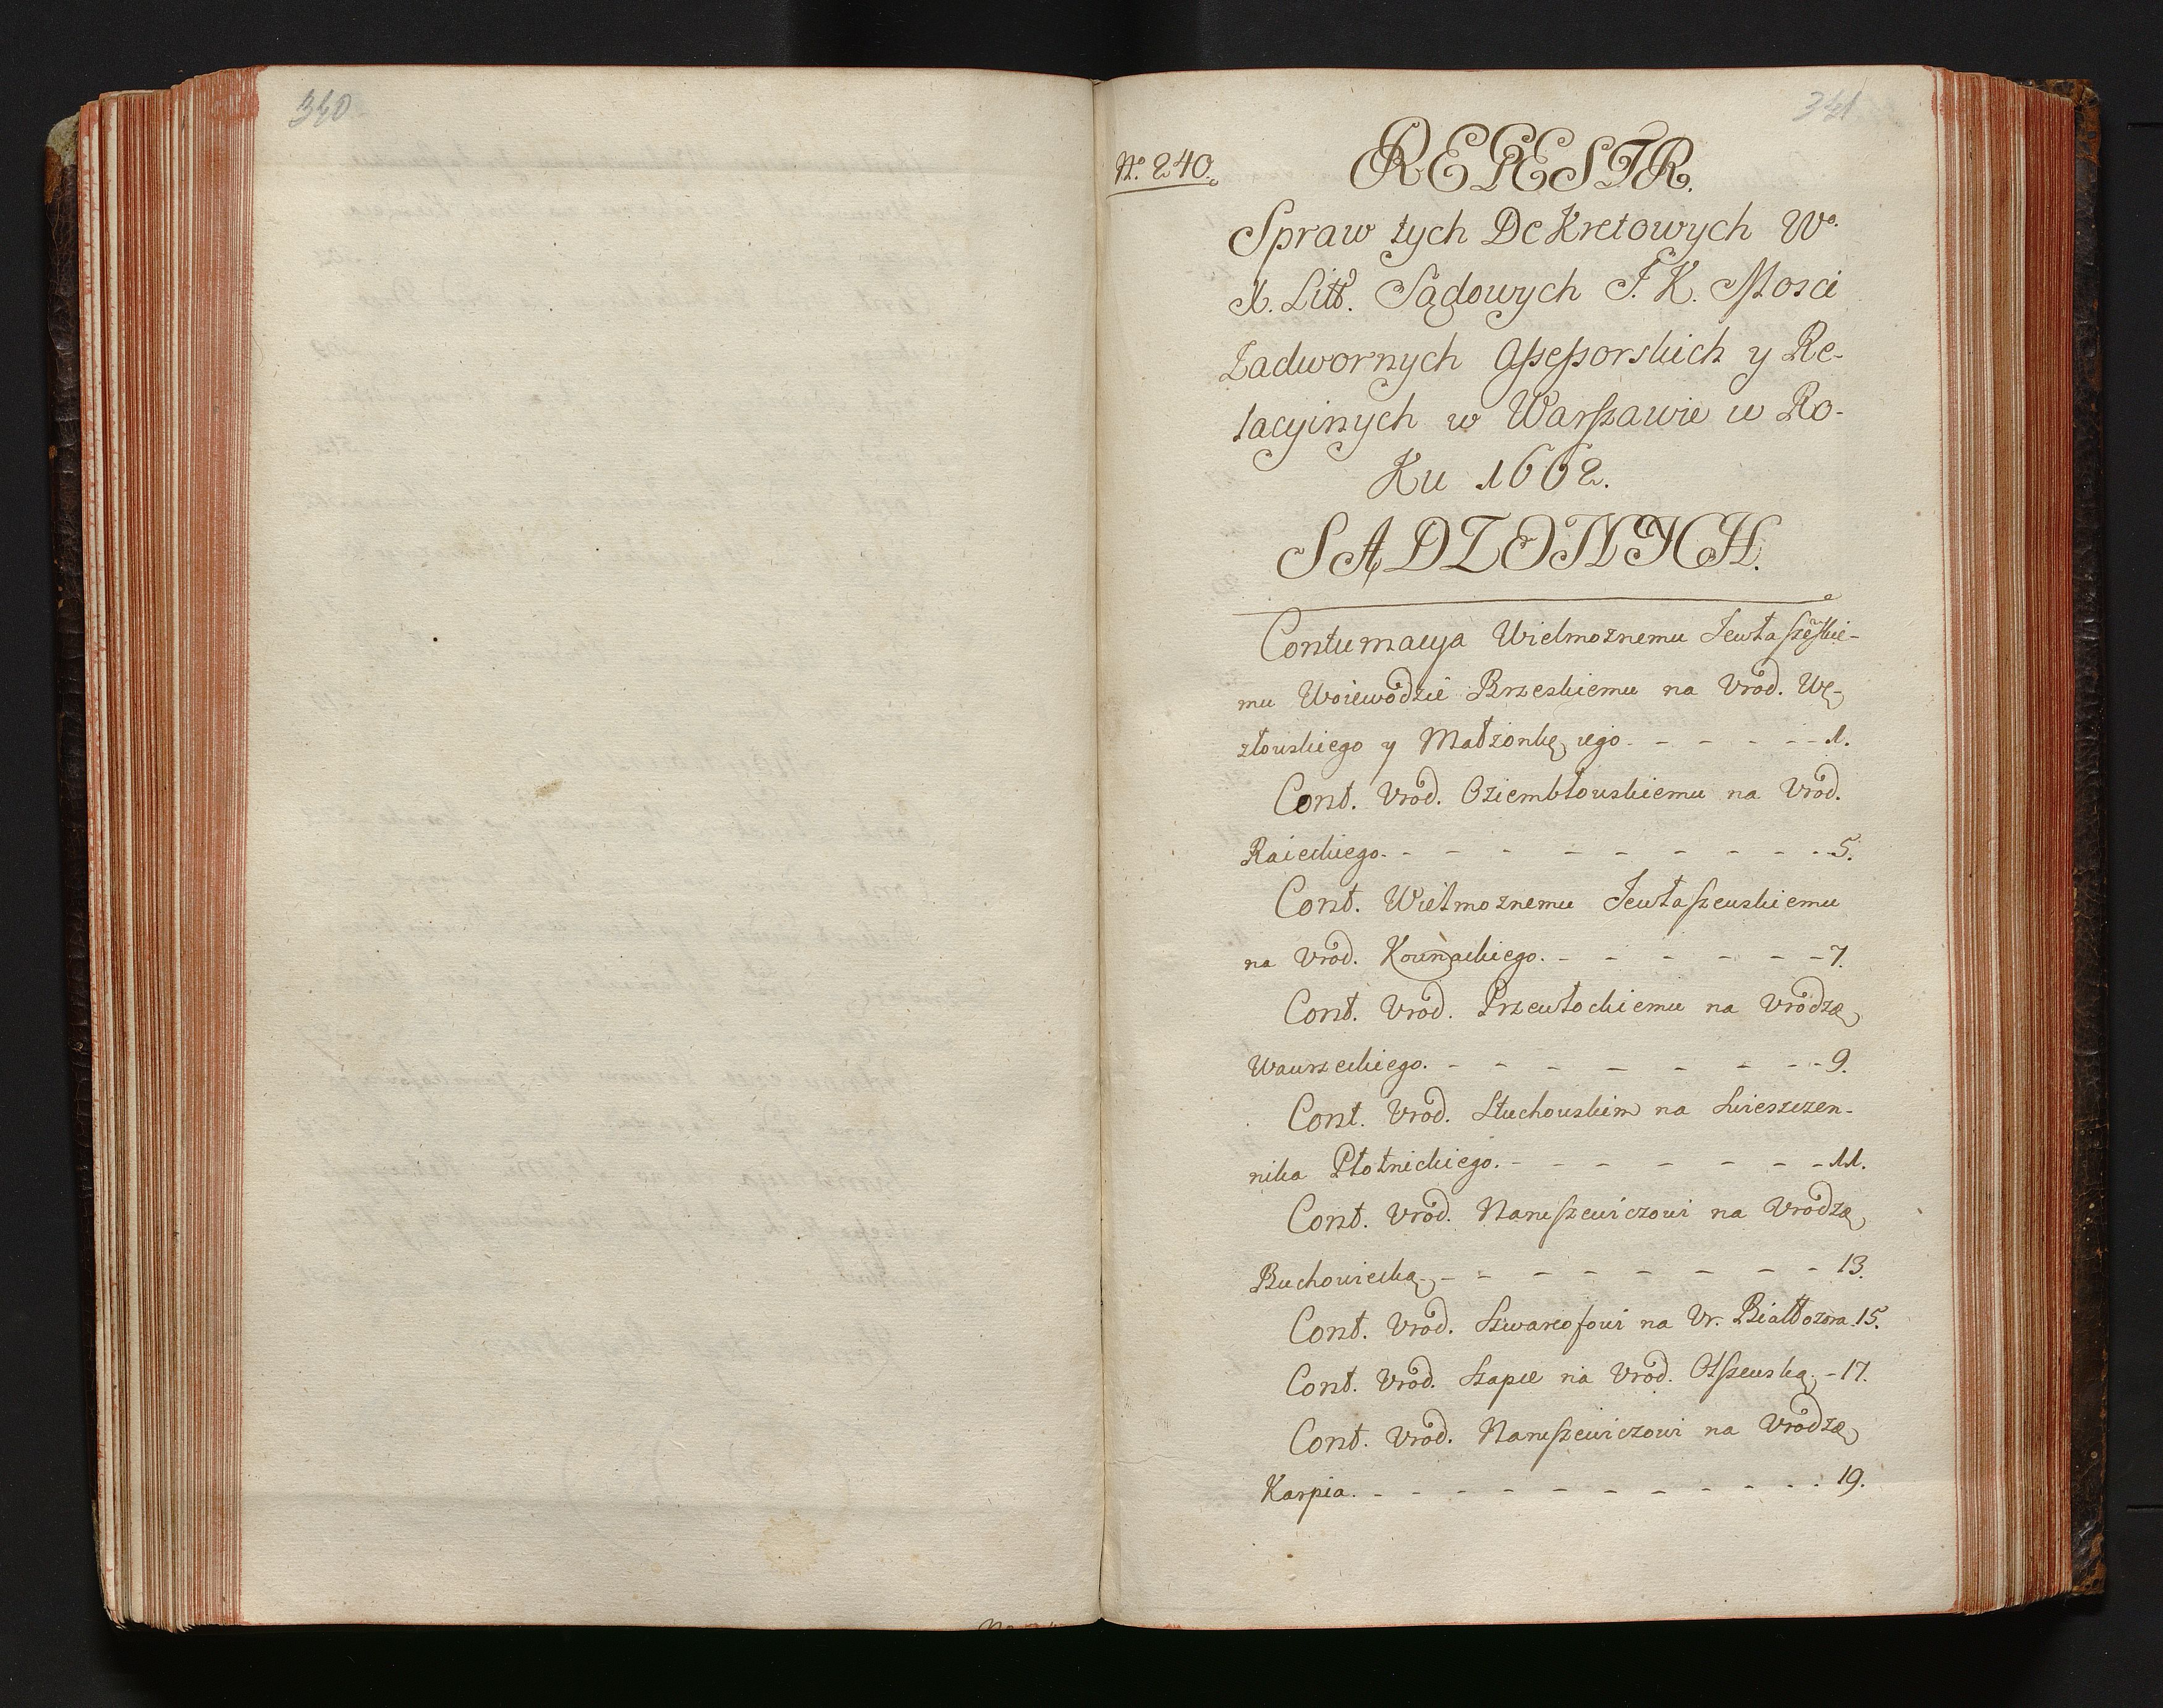 340
341
No. 240.
REGESTR.
Spraw tych DeKretowych Wo.
X. Litt. Sądowych J. K. Mosci
Zadwornych Assessorskich y Re-
lacyinych w Warszawie w Ro-
Ku 1662.
SĄDZONYCH.
Contumacya Wielmoznemu Jewłaszewskie-
mu Woiewodzie Brzeskiemu na Vrod. Wę-
złowskiego y Małżonkę iego. - - - - - 1.
Cont. Vrod. Oziembłowskiemu na Vrod.
Raieckiego. - - - - - - - - - 5.
Cont. Wielmoznemu Jewłaszewskiemu
na Vrod. Kownackiego. - - - - - - 7.
Cont. Vrod. Przewłockiemu na Vrodzo
Wawrzeckiego. - - - - - - - - 9.
Cont. Vrod. Słuchowskim na Swieszczen-
nika Płotnickiego. - - - - - - - 11.
Cont. Vrod. Naruszewiczowi na Vrodzo
Buchowiecką. - - - - - - - - 13.
Cont. Vrod. Szwarcofowi na Vr. Białłozora. 15.
Cont. Vrod. Szapce na Vrod. Olszewską. - 17.
Cont. Vrod. Naruszewiczowi na Vrodzo
Karpia. - - - - - - - - - - 19.